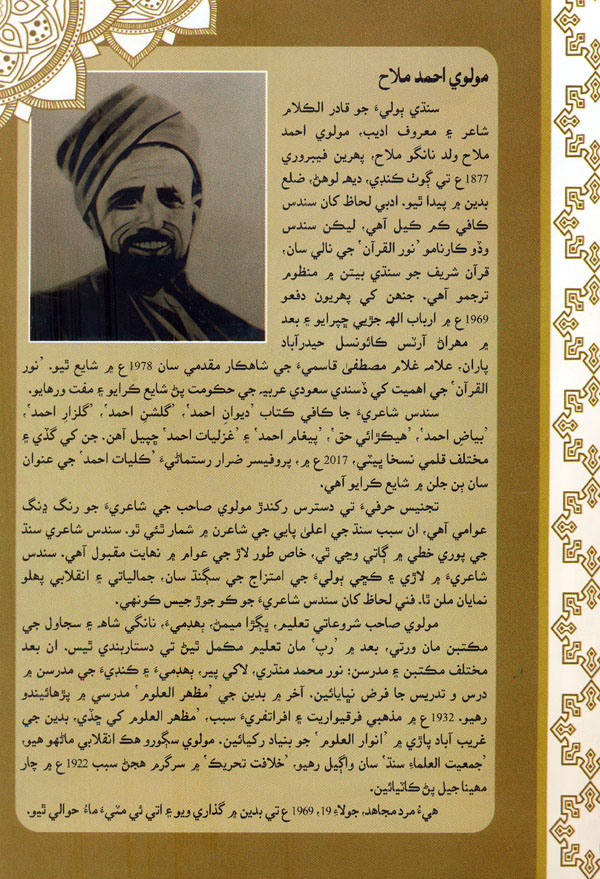 مولوي احمد ملاح
سنڌي ٻوليءَ جو قادر الڪلام
شاعر ۽ معروف اديب، مولوي احمد
ملاح ولد نانگو ملاح، پهرين فيبروري
1877ع تي ڳوٺ ڪنڍي، ديهہ لوهڻ، ضلع
بدين ۾ پيدا ٿيو. ادبي لحاظ کان سندس
ڪافي ڪم ڪيل آهي، ليڪن سندس
وڏو ڪارنامو ’نور القرآن‘ جي نالي سان،
قرآن شريف جو سنڌي بيتن ۾ منظوم
ترجمو آهي. جنهن کي پهريون دفعو
1969ع ۾ ارباب الهہ جڙيي ڇپرايو ۽ بعد
۾ مهراڻ آرٽس ڪائونسل حيدرآباد
پاران، علامہ غلام مصطفيٰ قاسميءَ جي شاهڪار مقدمي سان 1978ع ۾ شايع ٿيو. ’نور
القرآن‘ جي اهميت کي ڏسندي سعودي عربيہ جي حڪومت پڻ شايع ڪرايو ۽ مفت ورهايو.
سندس شاعريءَ جا ڪافي ڪتاب ’ديوانِ احمد‘، ’گلشنِ احمد‘، ’گلزارِ احمد‘،
’بياضِ احمد‘، ’هيڪڙائي حق‘، ’پيغام احمد‘ ۽ ’غزليات احمد‘ ڇپيل آهن. جن کي گڏي ۽
مختلف قلمي نسخا ڀيٽي، 2017ع ۾، پروفيسر ضرار رستماڻيءَ ’ڪليات احمد‘ جي عنوان
سان ٻن جلدن ۾ شايع ڪرايو آهي.
تجنيس حرفيءَ تي دسترس رکندڙ مولوي صاحب جي شاعريءَ جو رنگ ڍنگ
عوامي آهي، ان سبب سنڌ جي اعليٰ پايي جي شاعرن ۾ شمار ٿئي ٿو. سندس شاعري سنڌ
جي پوري خطي ۾ ڳائي وڃي ٿي، خاص طور لاڙ جي عوام ۾ نهايت مقبول آهي. سندس
شاعريءَ ۾ لاڙي ۽ ڪڇي ٻوليءَ جي امتزاج جي سڳنڌ سان، جمالياتي ۽ انقلابي پهلو
نمايان ملن ٿا. فني لحاظ کان سندس شاعريءَ جو ڪو جوڙ جيس ڪونهي.
مولوي صاحب شروعاتي تعليم، پڳڙا ميمڻ، ٻهڊميءَ، نانگي شاهہ ۽ سجاول جي
مڪتبن مان ورتي، بعد ۾ ’رپ‘ مان تعليم مڪمل ٿيڻ تي دستاربندي ٿيس. ان بعد
مختلف مڪتبن ۽ مدرسن: نور محمد منڌري، لاکي پير، ٻهڊميءَ ۽ ڪنڍيءَ جي مدرسن ۾
درس و تدريس جا فرض نڀايائين. آخر ۾ بدين جي ’مظهر العلوم‘ مدرسي ۾ پڙهائيندو
رهيو. 1932ع ۾ مذهبي فرقيواريت ۽ افراتفريءَ سبب، ’مظهر العلوم‘ کي ڇڏي، بدين جي
غريب آباد پاڙي ۾ ’انوار العلوم‘ جو بنياد رکيائين. مولوي سڳورو هڪ انقلابي ماڻهو هيو،
’جمعيت العلماءِ سنڌ‘ سان واڳيل رهيو، ’خلافت تحريڪ‘ ۾ سرگرم هجڻ سبب 1922ع ۾ چار
مهينا جيل پڻ ڪاٽيائين.
هيءُ مرد مجاهد، جولاءِ 19، 1969ع تي بدين ۾ گذاري ويو ۽ اتي ئي مٽيءَ ماءُ حوالي ٿيو.